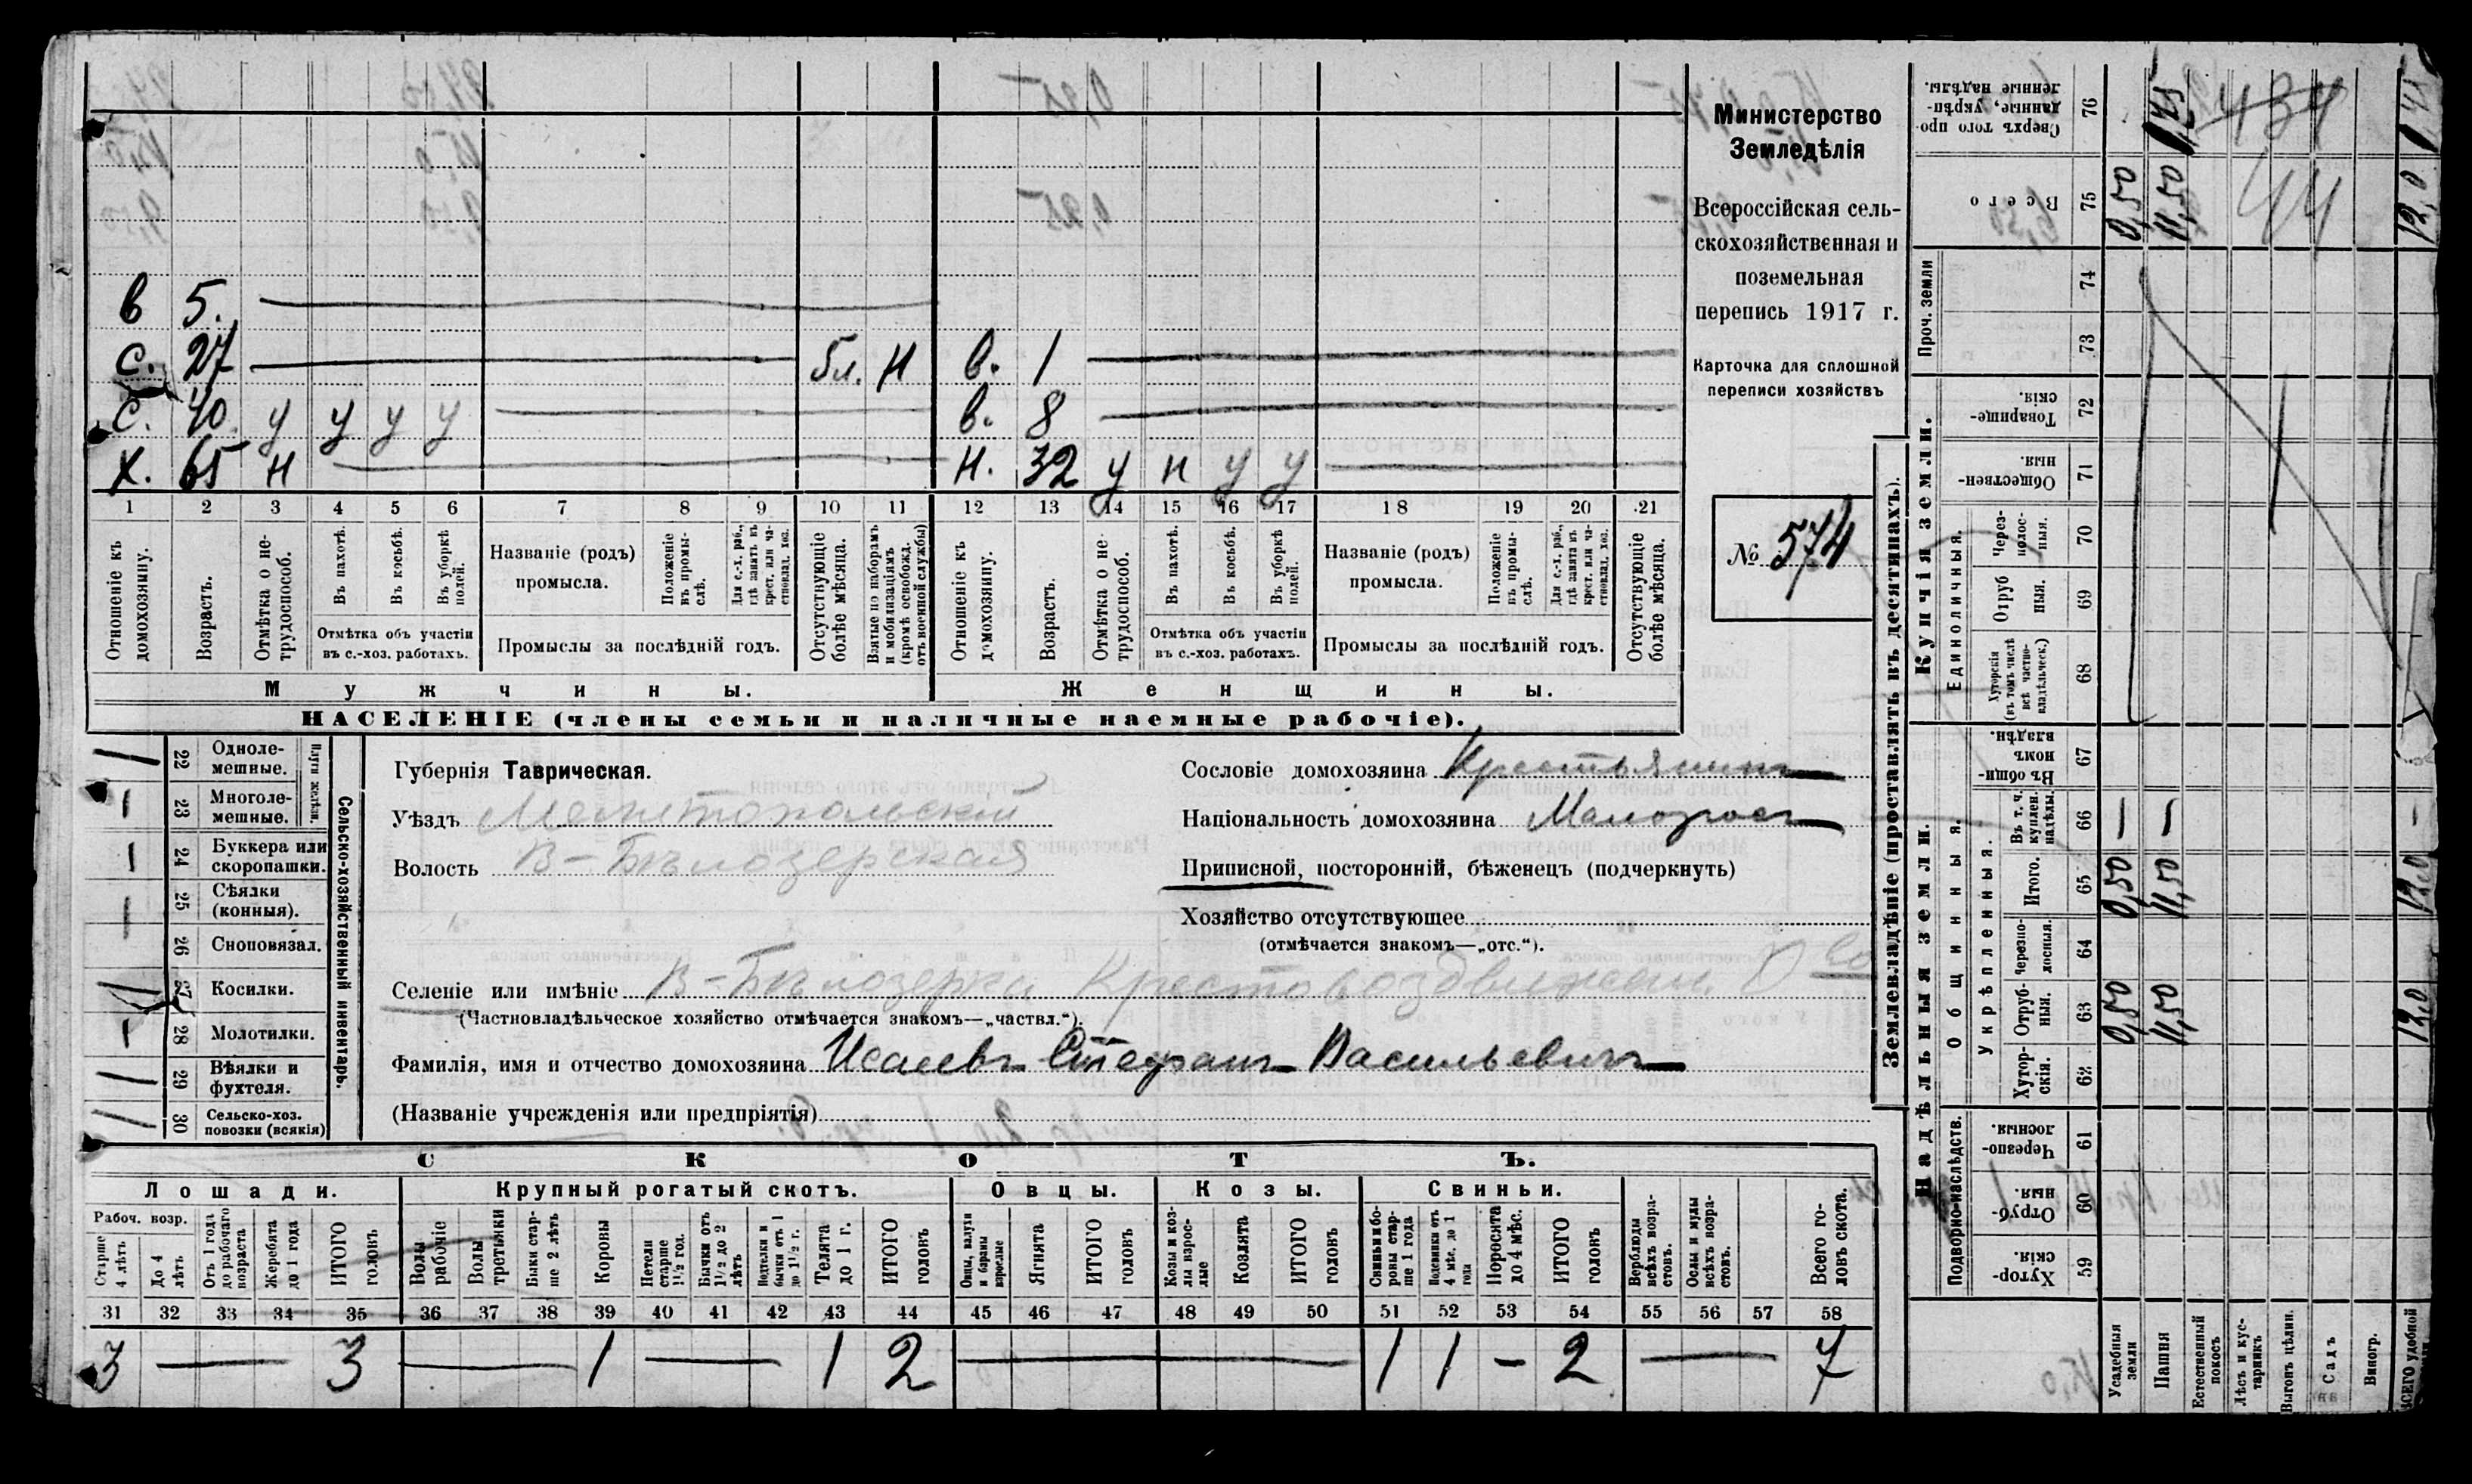 в 5.
с. 27 5л. н в. 1
с. 40 у у у у в. 8
х. 65 н н. 32 у н у у
1 2 3 4 5 6 7 8 9 10 11 12 13 14 15 16 17 18 19 20 21
Отношеніе къ домохозяину.
Возрастъ.
Отмѣтка о не-трудоспособ.
Въ пахотѣ.
Въ косьбѣ.
Въ уборкѣ полей.
Отмѣтка объ участіи
въ с.-хоз. работахъ.
Названіе (родъ)
промысла.
Положеніе въ промы-слѣ.
Для с.-х. раб., гдѣ занятъ въ крест. или ча-стновлад. хоз.
Промыслы за послѣдній годъ.
Отсутствующіе болѣе мѣсяца.
Взятые по наборамъ и мобилизаціямъ (кромѣ освобожд. отъ военной службы)
Отношеніе къ домохозяину.
Возрастъ.
Отмѣтка о не-трудоспособ.
Въ пахотѣ.
Въ косьбѣ.
Въ уборкѣ полей.
Отмѣтка объ участіи
въ с.-хоз. работахъ.
Названіе (родъ)
промысла.
Положеніе въ промы-слѣ.
Для с.-х. раб., гдѣ занята въ крест. или ча-стновлад. хоз.
Промыслы за послѣдній годъ.
Отсутствующіе болѣе мѣсяца.
Мужчины.
Женщины.
НАСЕЛЕНІЕ (члены семьи и наличные наемные рабочіе).
Министерство
Земледѣлія
Всероссійская сель-
скохозяйственная и
поземельная
перепись 1917 г.
Карточка для сплошной
переписи хозяйствъ
№ 574
Сельско-хозяйственный инвентарь.
Плуги желѣзн.
1 22 Одноле-мешные.
1 23 Многоле-мешные.
1 24 Буккера или скоропашки.
— 25 Сѣялки (конныя).
26 Сноповязал.
27 Косилки.
28 Молотилки.
1 29 Вѣялки и фухтеля.
1 30 Сельско-хоз. повозки (всякія)
Губернія Таврическая.
Уѣздъ Мелитопольскій
Волость В-Бѣлозерская
Сословіе домохозяина Крестьянинъ
Національность домохозяина Малоросъ
Приписной, посторонній, бѣженецъ (подчеркнуть)
Хозяйство отсутствующее
(отмѣчается знакомъ—„отс.“).
Селеніе или имѣніе В-Бѣлозерка Крестовоздвижен.
(Частновладѣльческое хозяйство отмѣчается знакомъ—„частвл.“).
Фамилія, имя и отчество домохозяина Исаевъ Стефанъ Васильевичъ
(Названіе учрежденія или предпріятія)
СКОТЪ.
Лошади. Крупный рогатый скотъ. Овцы. Козы. Свиньи.
Рабоч. возр.
Старше 4 лѣтъ
До 4 лѣтъ
Отъ 1 года до рабочаго возраста
Жеребята до 1 года
ИТОГО головъ
Волы рабочіе
Волы третьяки
Быки стар-ше 2 лѣтъ
Коровы
Нетели старше 1½ год.
Бычки отъ 1½ до 2 лѣтъ
Подтелки и бычки отъ 1 до 1½ г.
Телята до 1 г.
ИТОГО головъ
Овцы, валухи и бараны взрослые
Ягнята
ИТОГО головъ
Козы и коз-лы взрос-лые
Козлята
ИТОГО головъ
Свиньи и бо-ровы стар-ше 1 года
Подсвинки отъ 4 мѣс. до 1 года
Поросята до 4 мѣс.
ИТОГО головъ
Верблюды всѣхъ возра-стовъ.
Ослы и мулы всѣхъ возра-стовъ.
Всего го-ловъ скота.
31 32 33 34 35 36 37 38 39 40 41 42 43 44 45 46 47 48 49 50 51 52 53 54 55 56 57 58
3 — 3 — 1 — 1 2 — 1 1 — 2 — 7
Землевладѣніе (проставлять въ десятинахъ).
Надѣльныя земли.
Купчія земли.
Проч. земли
Подворно-наслѣдств.
Общинныя.
Укрѣпленныя.
Единоличныя.
Сверхъ того про-данные, укрѣп-ленные надѣлы. 76 1,45 434
Всего 75 0,50 11,50 44 12,0
74
73
Товарище-скія. 72
Обществен-ныя. 71
Через-полос-ныя. 70
Отруб-ныя. 69
Хуторскія (въ томъ числѣ всѣ частно-владѣльческ.) 68
Въ общин-номъ владѣн. 67
Въ т. ч. куплен. надѣлы. 66 — — —
Итого. 65 0,50 11,50 12,0
Черезпо-лосныя. 64
Отруб-ныя. 63 0,50 11,50 12,0
Хутор-скія. 62
Черезпо-лосныя. 61
Отруб-ныя. 60
Хутор-скія. 59
Усадебныя земли
Пашня
Естественный покосъ
Лѣсъ и кус-тарникъ
Выгонъ цѣлин.
Садъ
Виногр.
ВСЕГО удобной